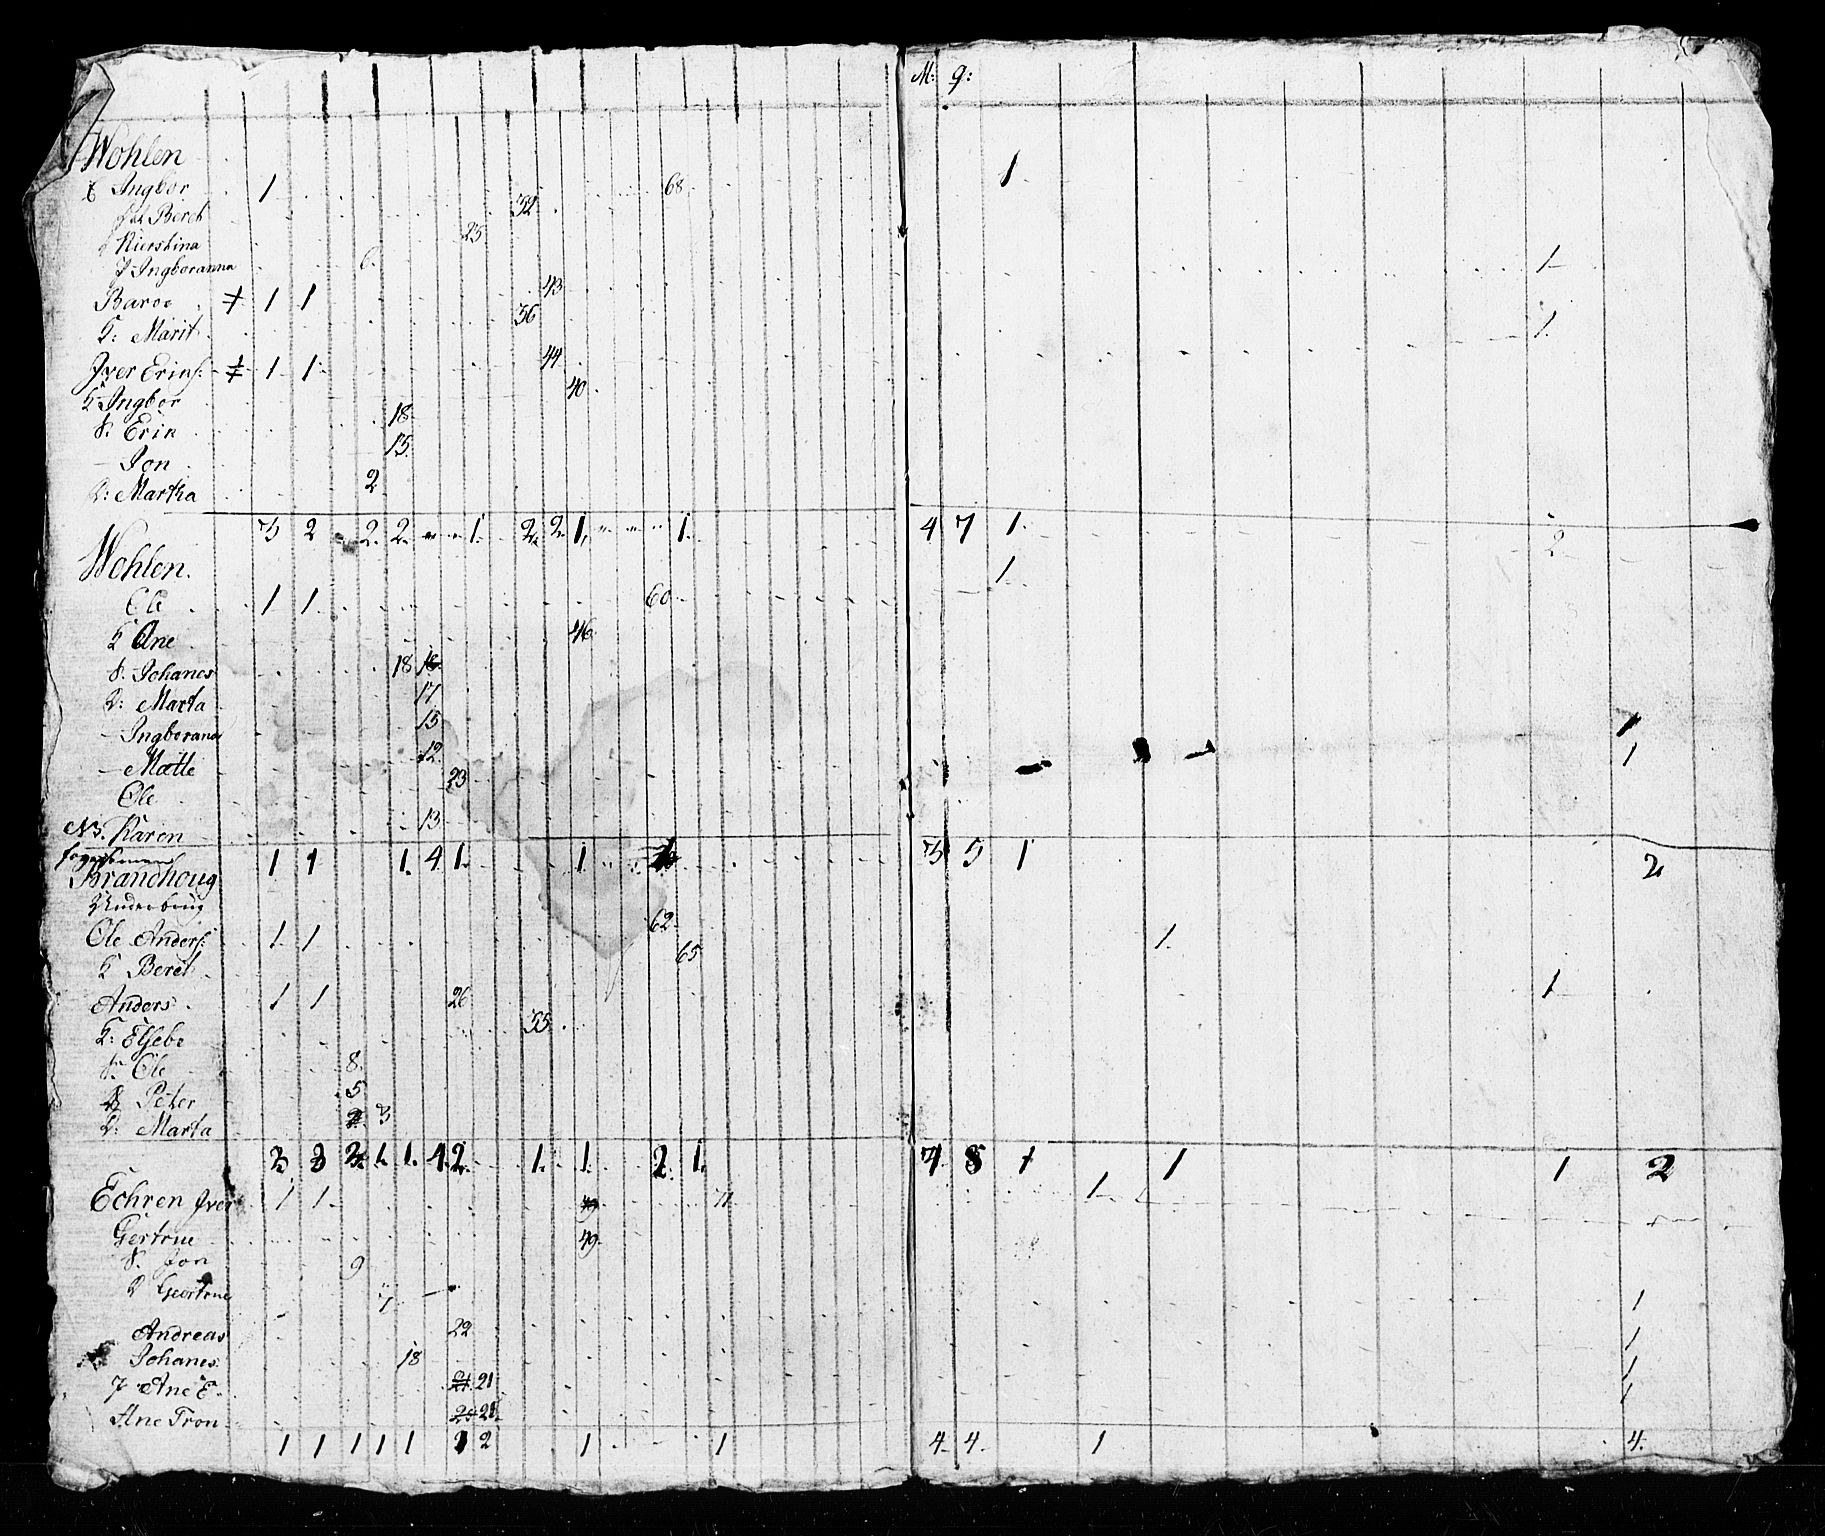 M: q:
Wohlen
E Ingbor 1 68 1
Beret 32
Kierstina 25
J Ingboranna 6 1
Baroe 1 1 43
K: Marit 36 1
Iver Erins: 1 1 44
K Ingbor 40
S. Erik 18
Jon 15
D: Martha 2
3 2 2 2 1 2 2 1 1 4 7 1 2
Wohlen. 1
Ole 1 1 60
K Ane 46
S. Johanes 18 18
D: Marta 17
Ingborana 15 1
Mætte 12 1
Ole 23
NB. Karen 13
1 1 1 4 1 1 1 3 5 1 2
Brandhoug
Ole Anders: 1 1 62 1
K Beret 65
Anders 1 1 26 1
K: Elsebe 35
S. Ole 8
S Peter 5
D: Marta 2 3
2 2 2 1 1 4 2 1 1 2 1 4 8 1 1 1 2
Echren Iver 1 1 49 71 1
Gertrue 49
S. Jon 9
D Geertrue 7 1
Andreas 22 1
Johanes 18 1
J Ane E 21 21 1
Ane Tron 24 21
1 1 1 1 1 1 2 1 1 4 4 1 4